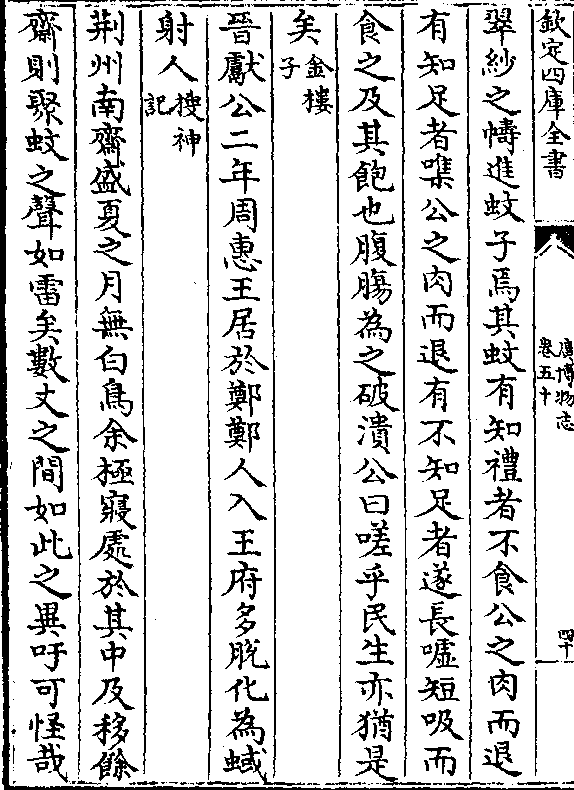 欽定四庫全書
廣博物志
卷五十
四十
翠紗之幬進蚊子焉其蚊有知禮者不食公之肉而退
有知足者噍公之肉而退有不知足者遂長噓短吸而
食之及其飽也腹膓為之破潰公曰嗟乎民生亦猶是
矣金樓子
晉獻公二年周惠王居於鄭鄭人入王府多脫化為蜮
射人搜神記
荆州南齋盛夏之月無白鳥余極寢處於其中及移餘
齋則聚蚊之聲如雷矣數丈之間如此之異吁可怪哉